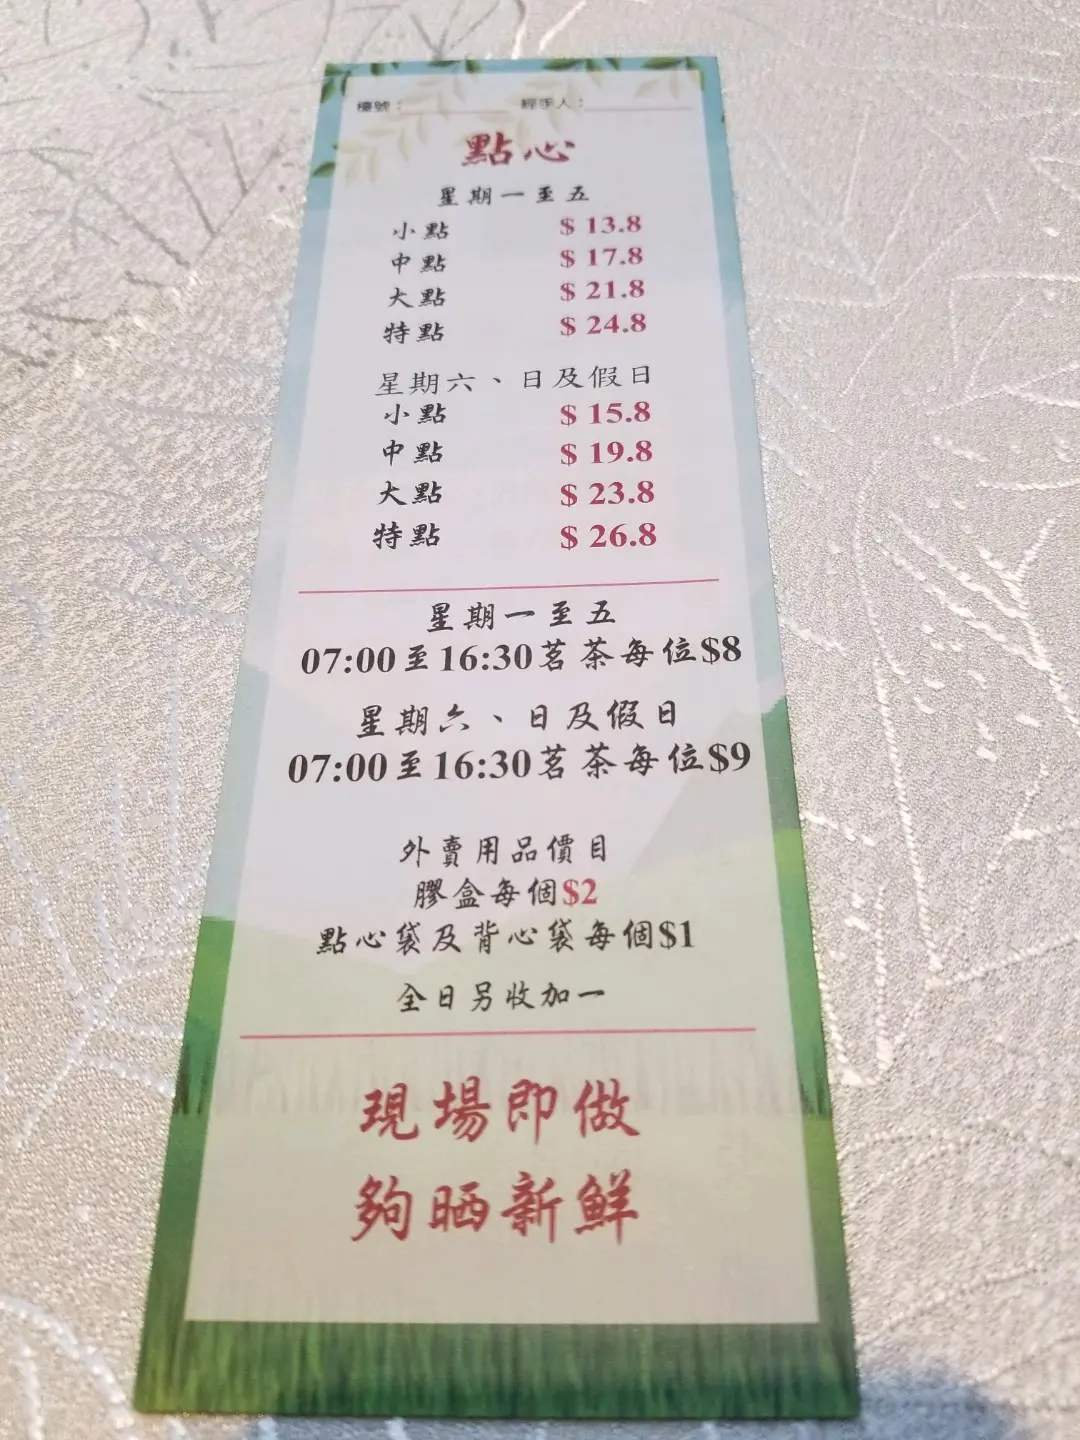 檯號： 經手人：
點心
星期一至五
小點 $ 13.8
中點 $ 17.8
大點 $ 21.8
特點 $ 24.8
星期六、日及假日
小點 $ 15.8
中點 $ 19.8
大點 $ 23.8
特點 $ 26.8
星期一至五
07:00至16:30茗茶每位$8
星期六、日及假日
07:00至16:30茗茶每位$9
外賣用品價目
膠盒每個$2
點心袋及背心袋每個$1
全日另收加一
現場即做
夠晒新鮮